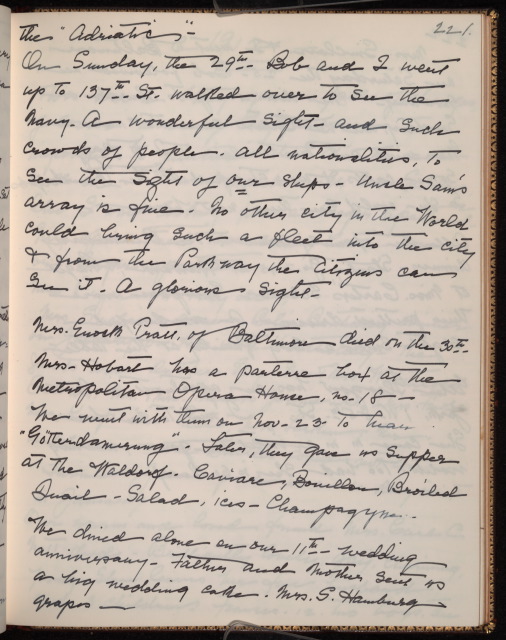 221.
the "Adriatic"-
On Sunday, the 29th- Bob and I went
up to 137th St. walked over to see the
Navy- A wonderful sight- and such
crowds of people. all nationalities, to
see the sight of our ships- Uncle Sam's
array is fine. No other city in the World
could bring such a fleet into the city
& from the Parkway the Citizens can
see it. A glorious sight-
Mrs. Enoch Pratt, of Baltimore died on the 30th-
Mrs- Hobart has a parterre box at the
Metropolitan Opera House, no-18-
We went with them on Nov-23- To hear
"Götterdamerung"- Later, they gave us supper
at the Waldorf- Caviare, Bouillon, Broiled
Quail- Salad, ices- Champagne-
We dined alone on our 11th- wedding
anniversary- Father and Mother sent us
a big wedding cake. Mrs. S. Hamburg
grapes-